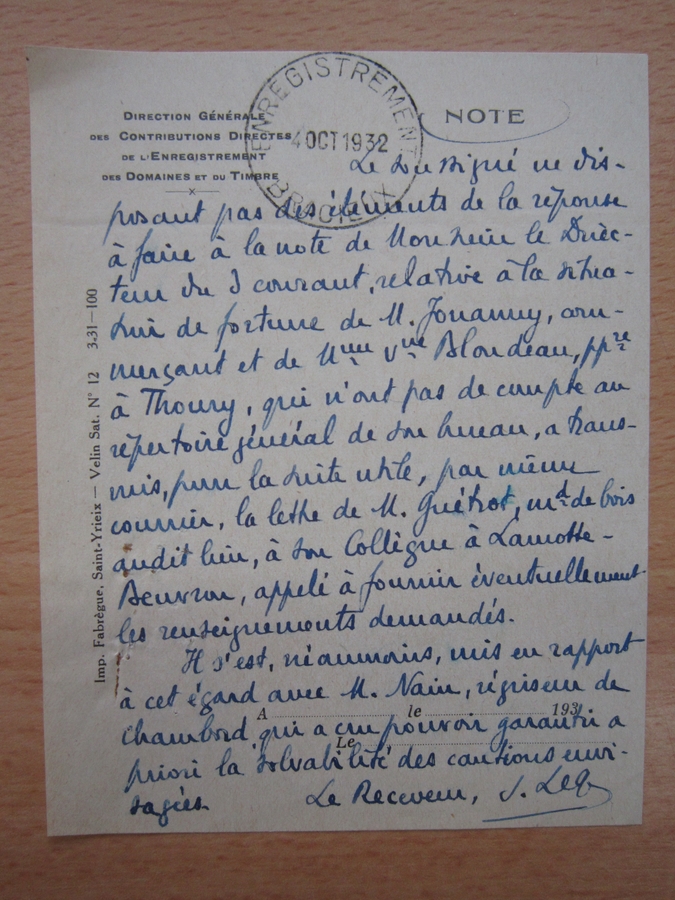 DIRECTION GÉNÉRALE
DES CONTRIBUTIONS DIRECTES
DE L'ENREGISTREMENT
DES DOMAINES ET DU TIMBRE
ENREGISTREMENT
4 OCT 1932
BRACIEUX
NOTE
Le soussigné ne dis-
posant pas des éléments de la réponse
à faire à la note de Monsieur le Direc-
teur du 3 courant, relative à la situa-
tion de fortune de M. Jouanny, com-
merçant et de Mme Vve Blondeau, ppre
à Thoury, qui n'ont pas de compte au
répertoire général de son bureau, a trans-
mis, pour la suite utile, par même
courrier, la lettre de M. Guétrot, md de bois
audit lieu, à son Collègue à Lamotte-
Beuvron, appelé à fournir éventuellement
les renseignements demandés.
Il s'est, néanmoins, mis en rapport
à cet égard avec M. Nain, régisseur de
Chambord qui a cru pouvoir garantir a
priori la solvabilité des cautions envi-
sagées.
A le 193
Le
Le Receveur,
Imp. Fabrègue, Saint-Yrieix — Velin Sat. N° 12 3-31—100